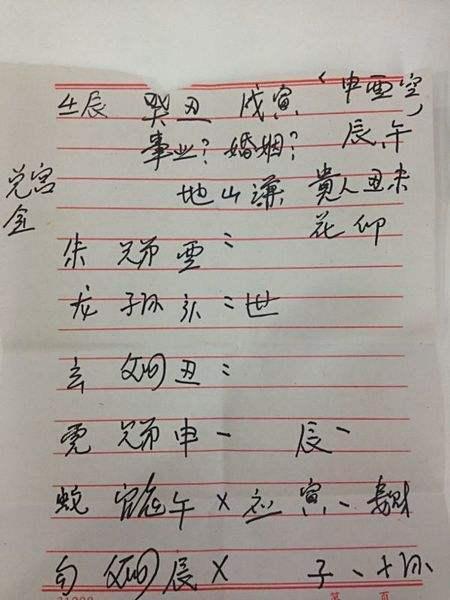 壬辰 癸丑 戊寅 (申酉空)
事业？婚姻？ 辰午
兑宫 地山谦 貴人丑未
金 花卯
朱 兄弟酉:
龙 子孙亥:世
玄 父母丑:
虎 兄弟申、 辰、
蛇 官鬼午× 应 寅、妻财
勾 父母辰× 子、子孙
第 页